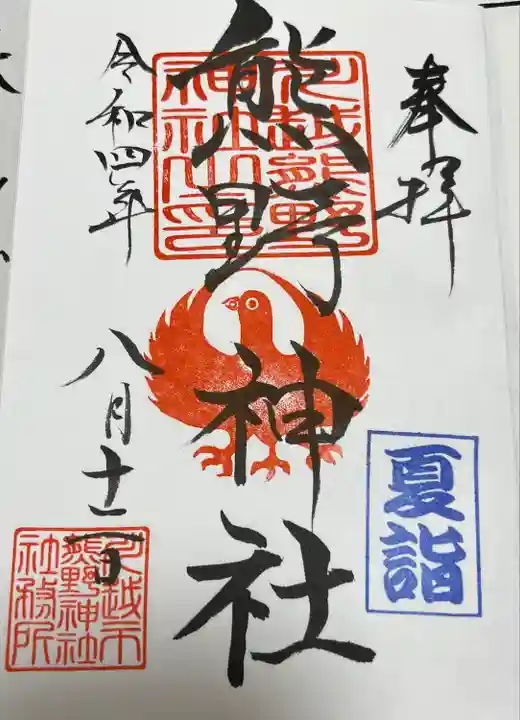 奉拝
夏詣
熊野神社
川越熊野
神社之印
令和四年
八月十一日
川越市
熊野神社
社務所